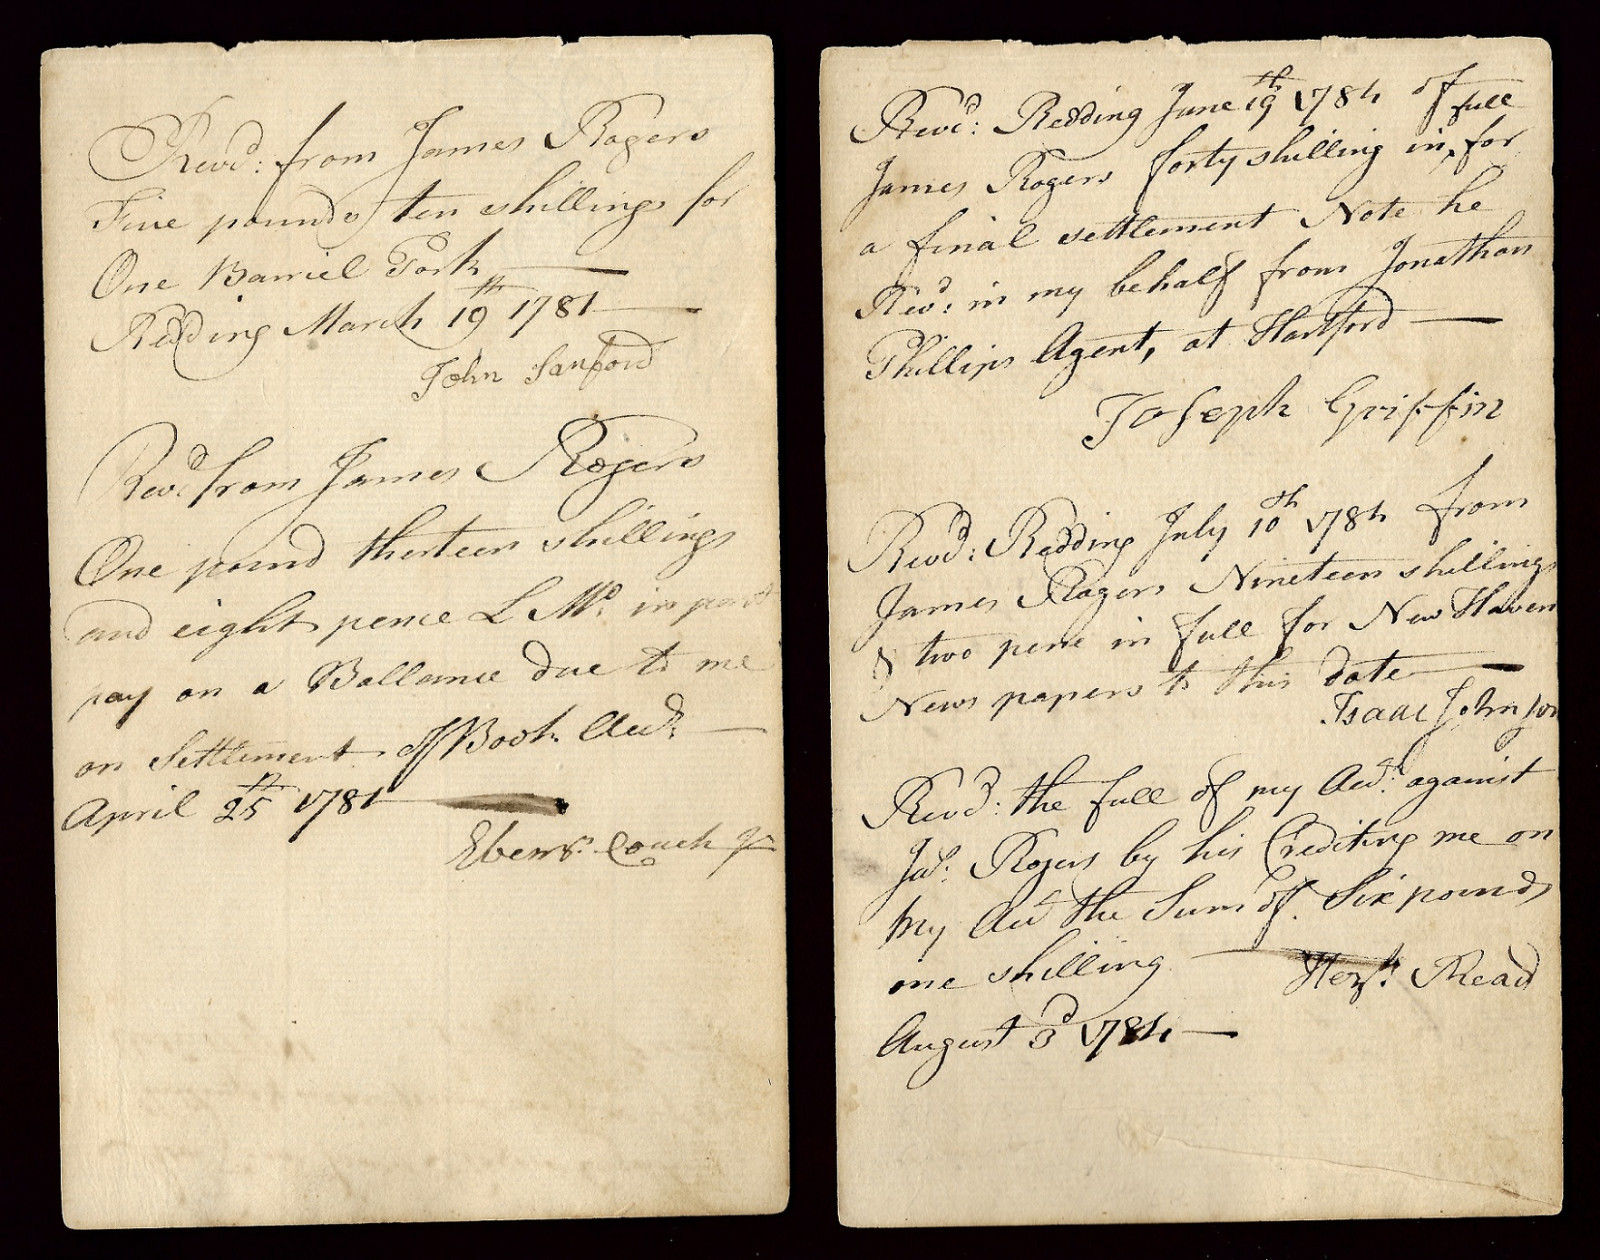 Recvd: from James Rogers
Five pounds ten shillings for
One Barriel Pork
Redding March 19th 1781
John Sanford
Recvd from James Rogers
One pound thirteen shillings
and eight pence L Mo. in part
pay on a Ballance due to me
on Settlement of Book Acct.
April 25th 1781
Ebenr. Couch Jr
Recvd: Redding June 19th 1784 of
James Rogers forty shilling in full for
a final settlement Note he
Recd: in my behalf from Jonathan
Phillips Agent, at Hartford
Joseph Griffin
Recvd: Redding July 10th 1784 from
James Rogers Nineteen shillings
& two pene in full for New Haven
News papers to this date
Isaac Johnson
Recvd: the full of my Acct. against
Jas. Rogers by his Crediting me on
my Acct the Sum of Six pounds
one shilling
Hezh. Read
August 3d 1784